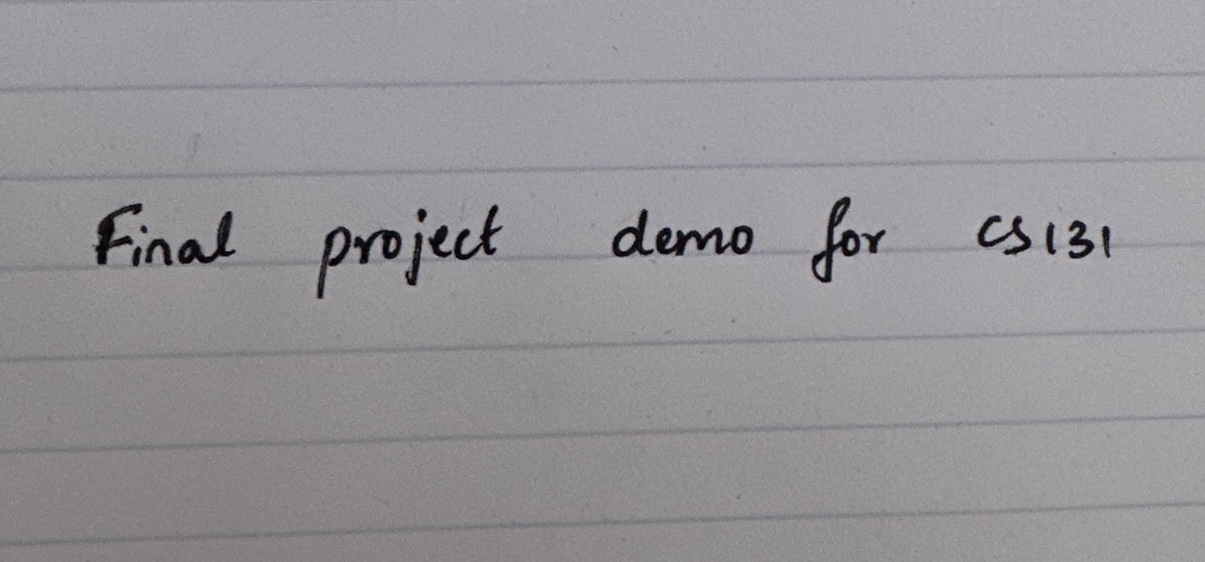 Final project demo for CS131